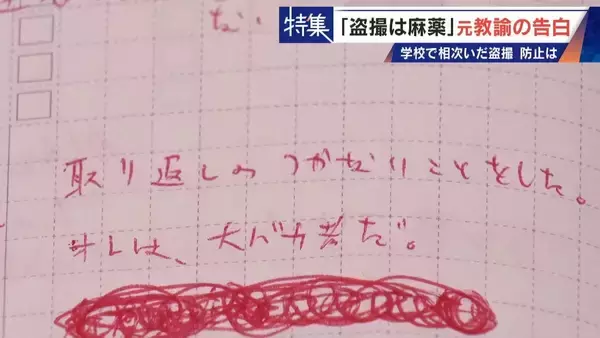 特集
「盗撮は麻薬」元教諭の告白
学校で相次いだ盗撮 防止は
だ。
取り返しのつかないことをした。
オレは、大バカ者だ。